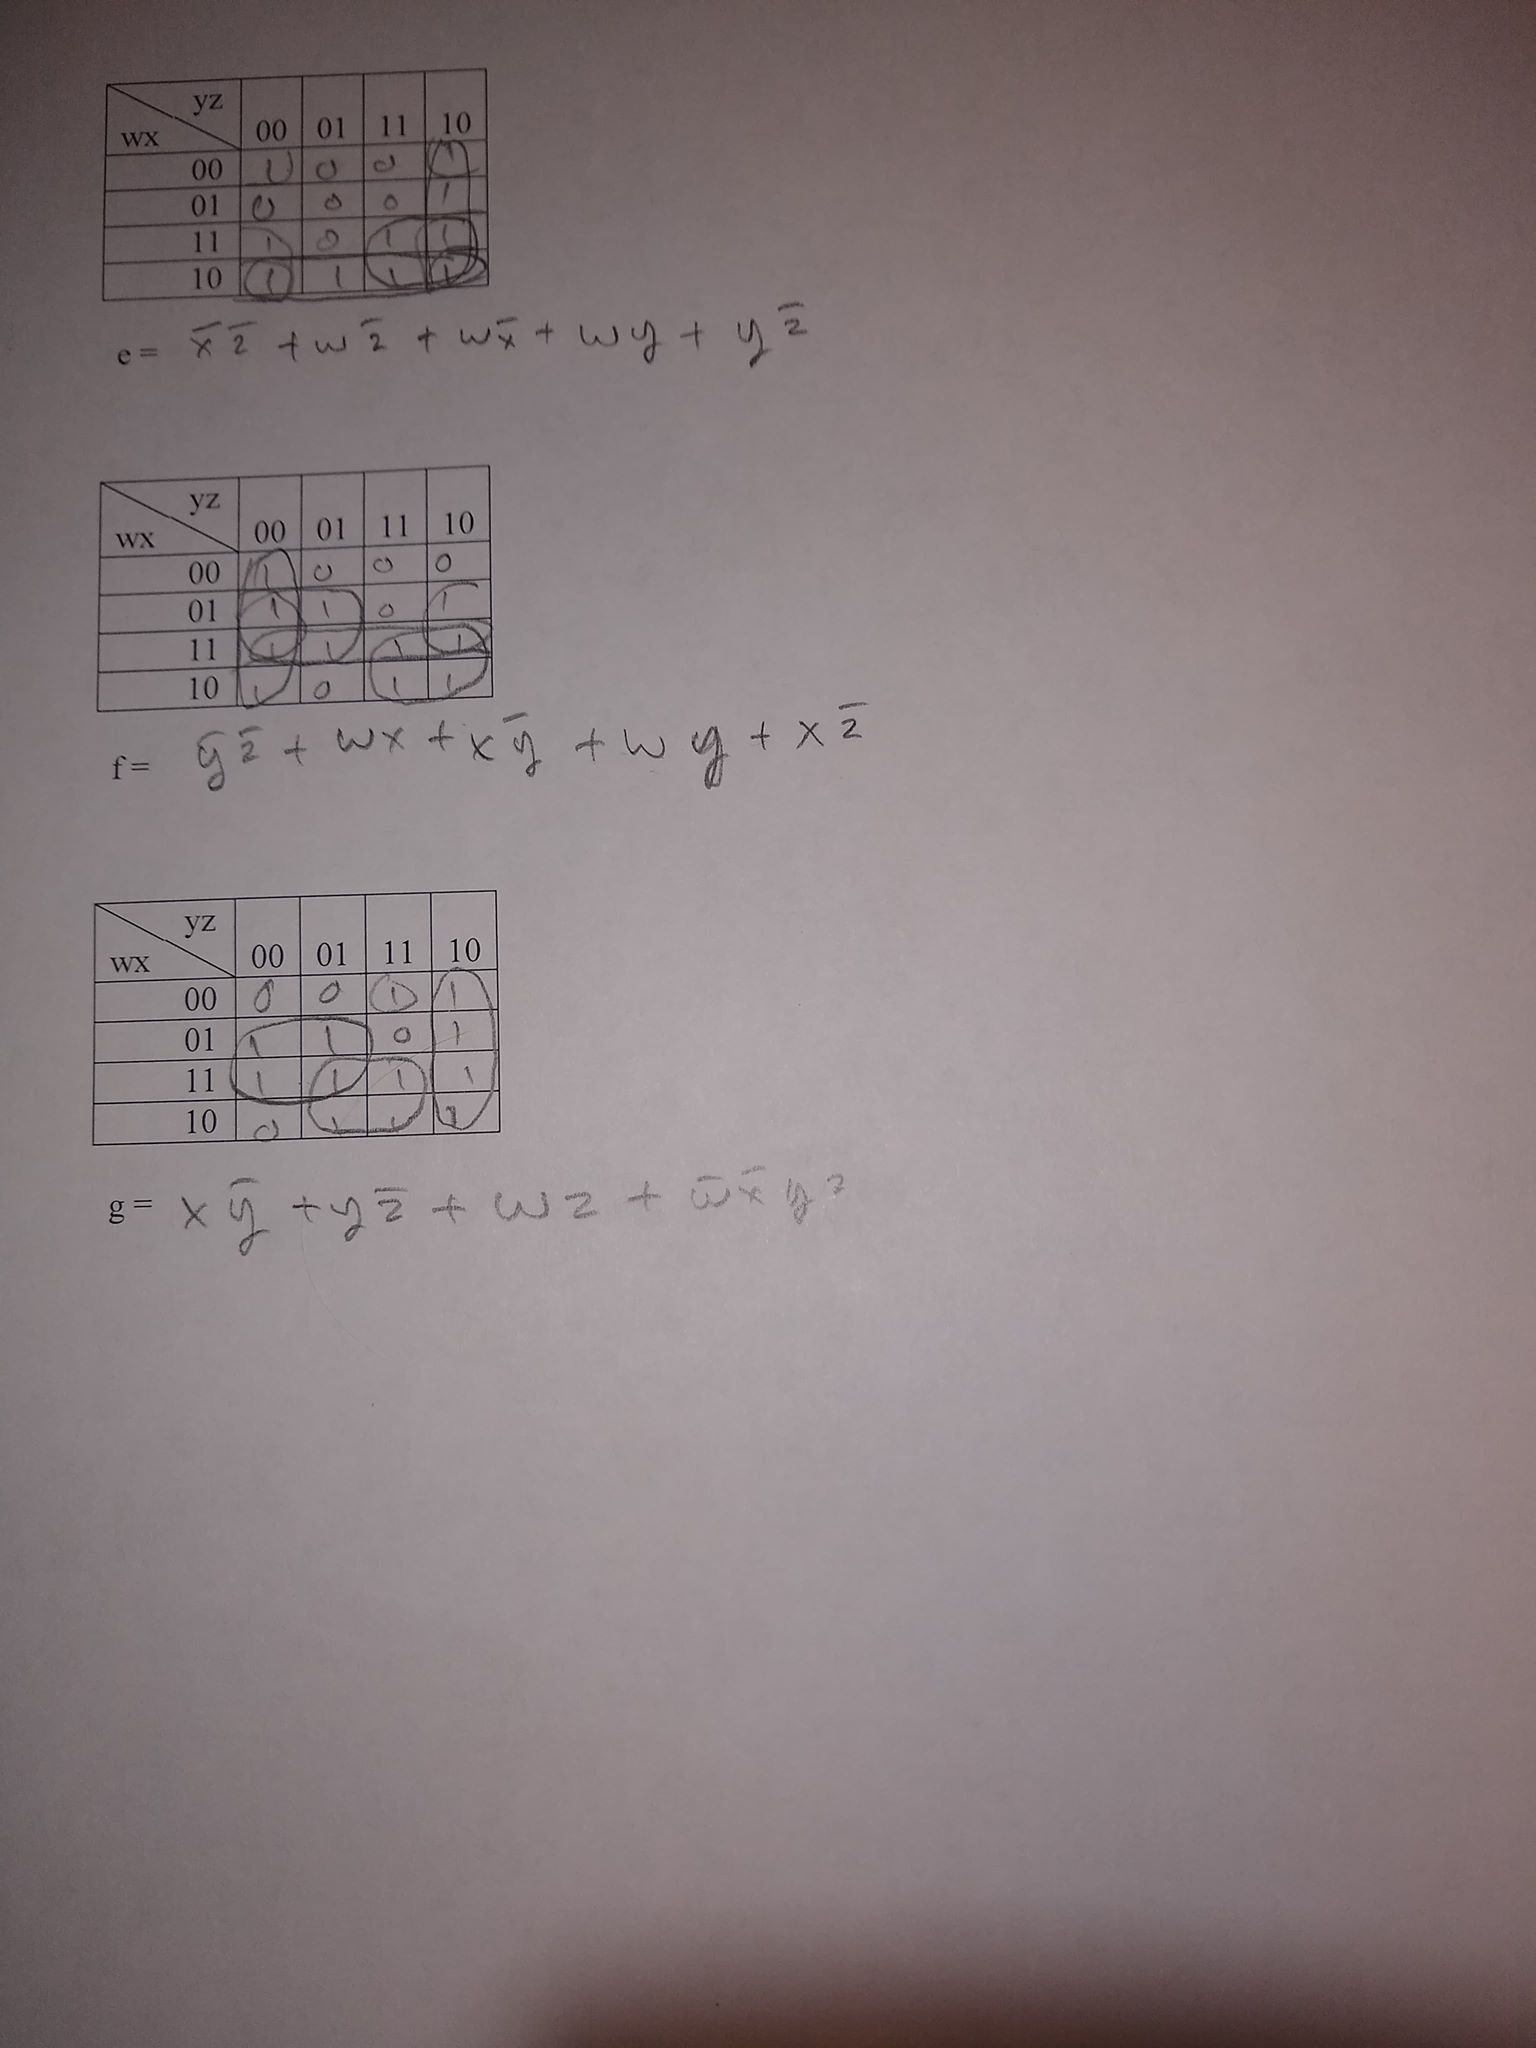 yz
wx 00 01 11 10
00 1 0 0 1
01 0 0 0 1
11 1 0 1 1
10 1 1 1 1
e = x̅ z̅ + w z̅ + w x̅ + w y + y z̅
yz
wx 00 01 11 10
00 1 0 0 0
01 1 1 0 1
11 1 1 1 1
10 1 0 1 1
f = y̅ z̅ + w x + x y̅ + w y + x z̅
yz
wx 00 01 11 10
00 0 0 1 1
01 1 1 0 1
11 1 1 1 1
10 0 1 1 1
g = x y̅ + y z̅ + w z + w̅ x̅ y z